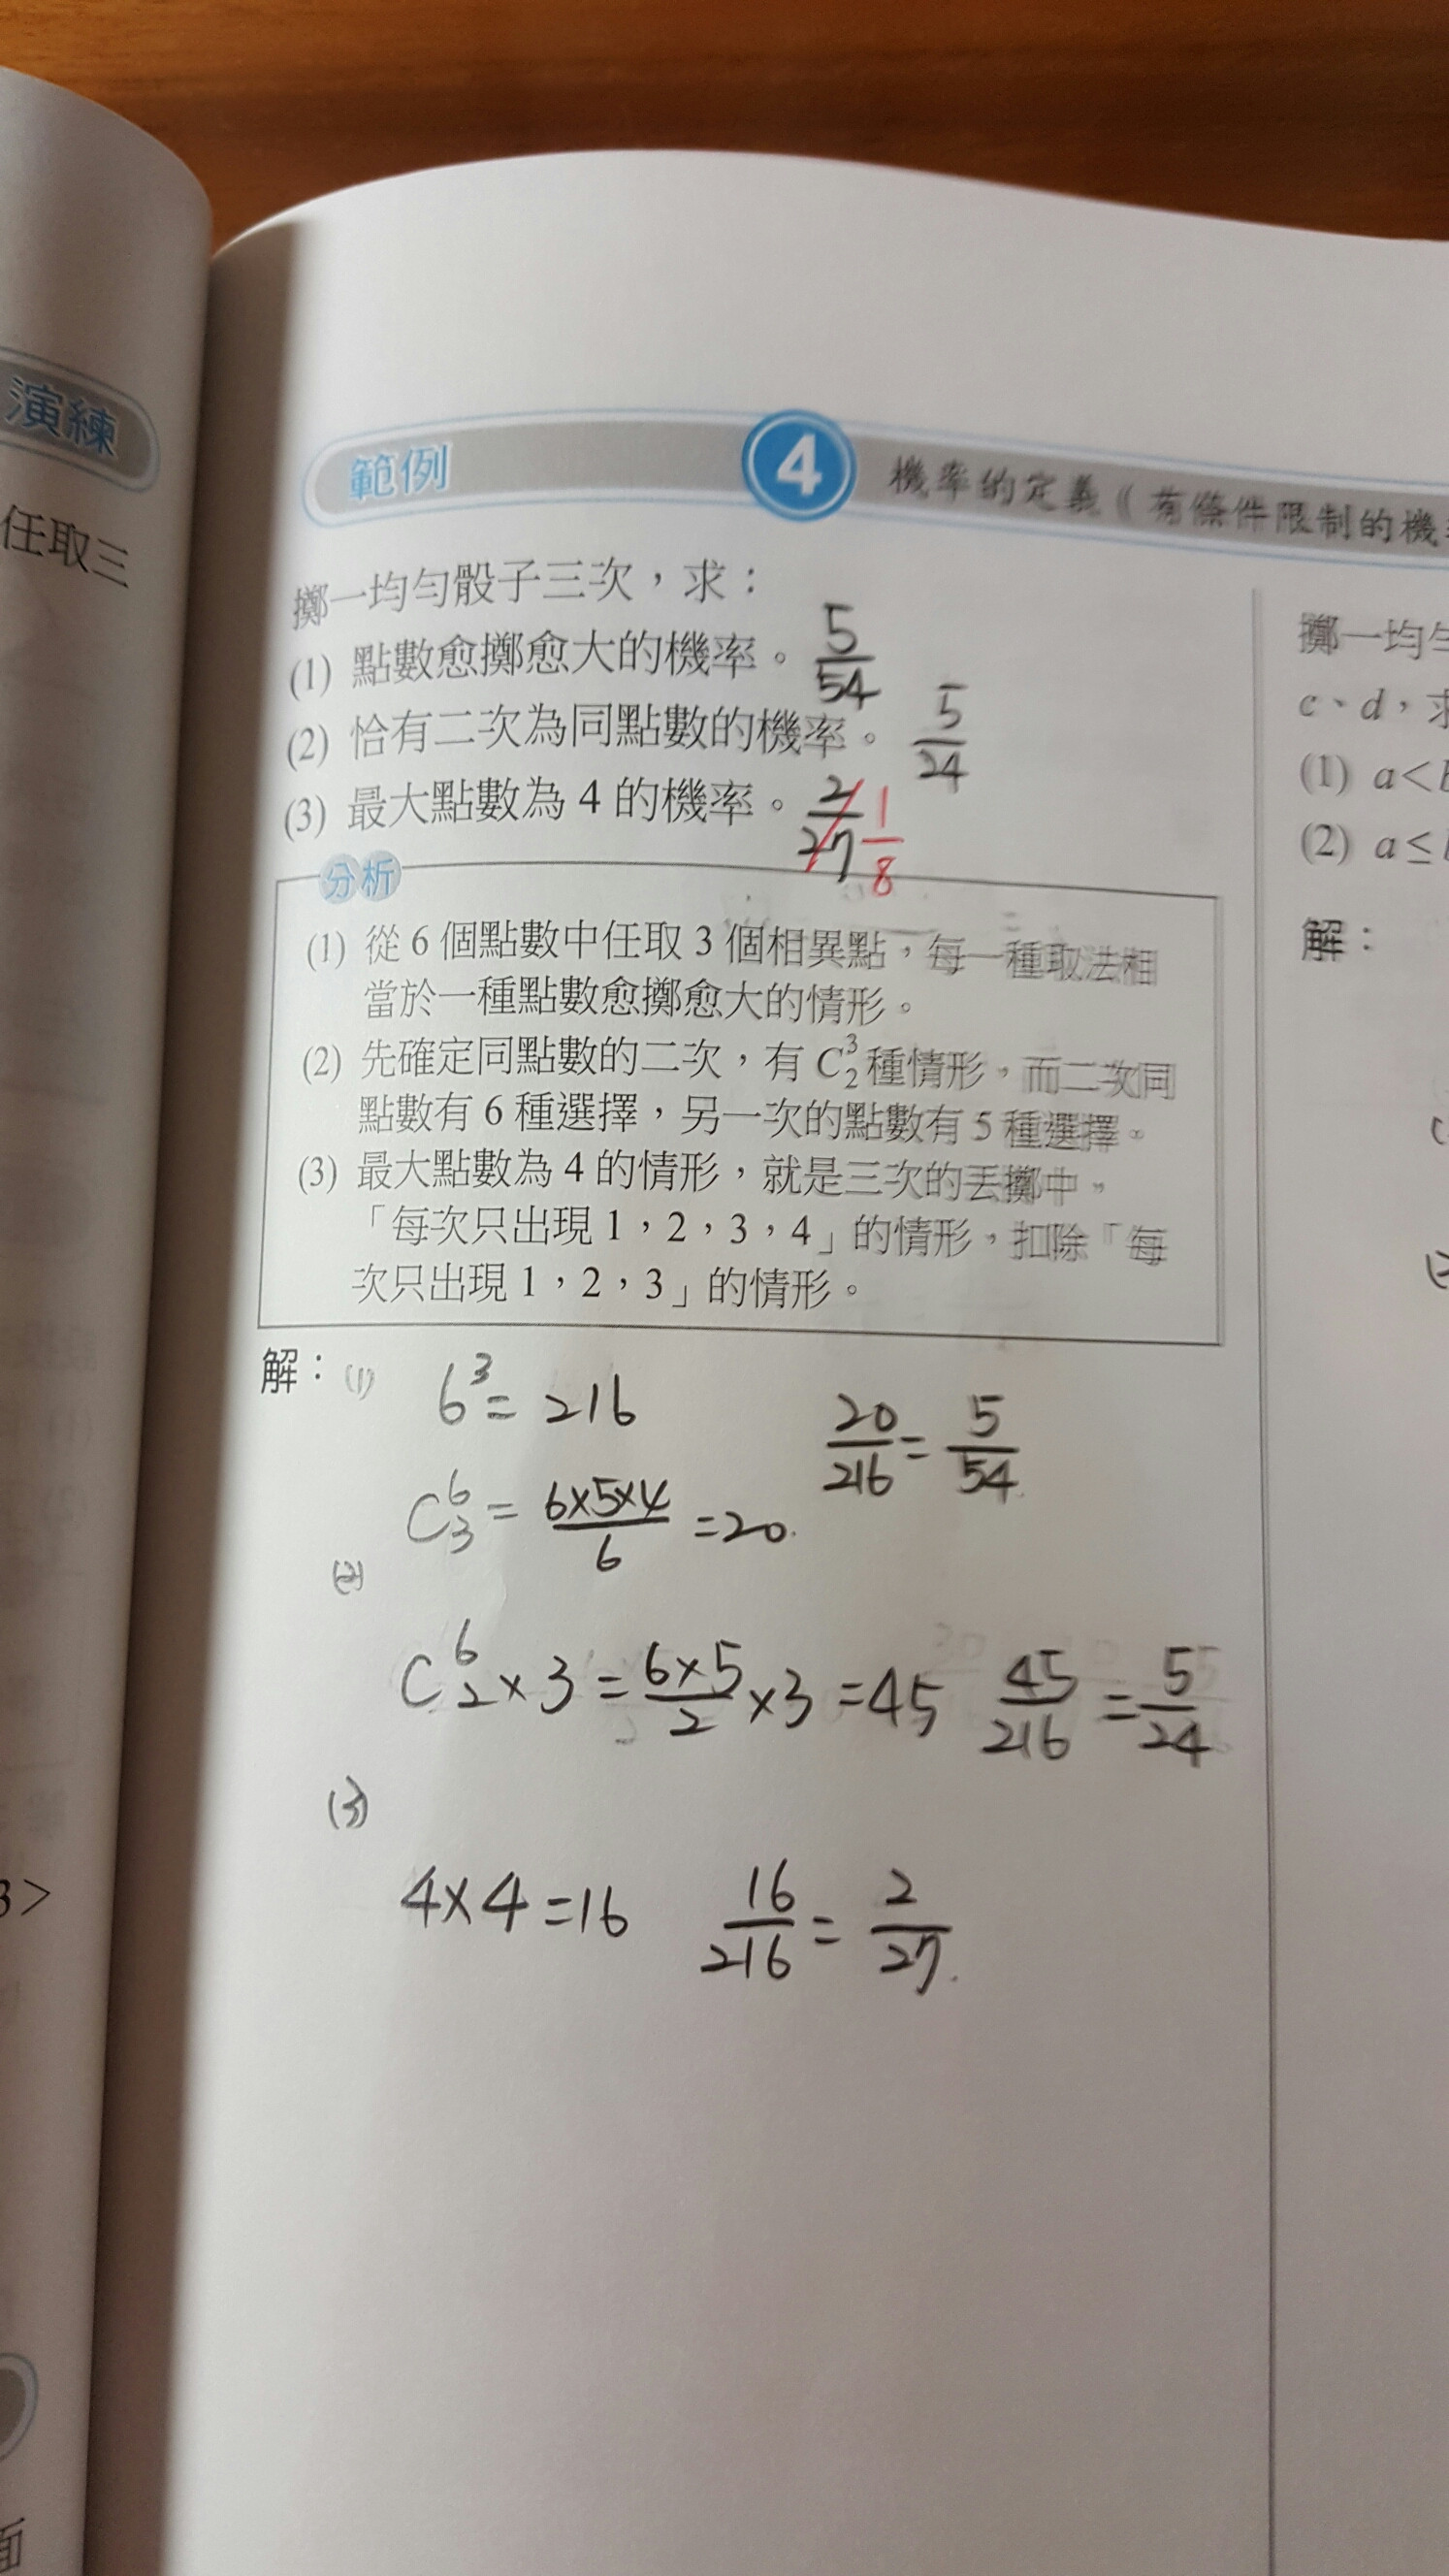 演練
任取三
3>
面
範例 4 機率的定義（有條件限制的機
擲一均勻骰子三次，求：
(1) 點數愈擲愈大的機率。 5/54
(2) 恰有二次為同點數的機率。 5/24
(3) 最大點數為 4 的機率。 2/27 1/8
分析
(1) 從 6 個點數中任取 3 個相異點，每一種取法相
當於一種點數愈擲愈大的情形。
(2) 先確定同點數的二次，有 C³₂ 種情形，而二次同
點數有 6 種選擇，另一次的點數有 5 種選擇。
(3) 最大點數為 4 的情形，就是三次的丟擲中，
「每次只出現 1，2，3，4」的情形，扣除「每
次只出現 1，2，3」的情形。
解：(1) 6³ = 216 20/216 = 5/54
C⁶₃ = 6×5×4/6 = 20
(2)
C⁶₂×3 = 6×5/2 ×3 = 45 45/216 = 5/24
(3)
4×4=16 16/216 = 2/27
擲一均勻
c、d，求
(1) a<b
(2) a≤
解：